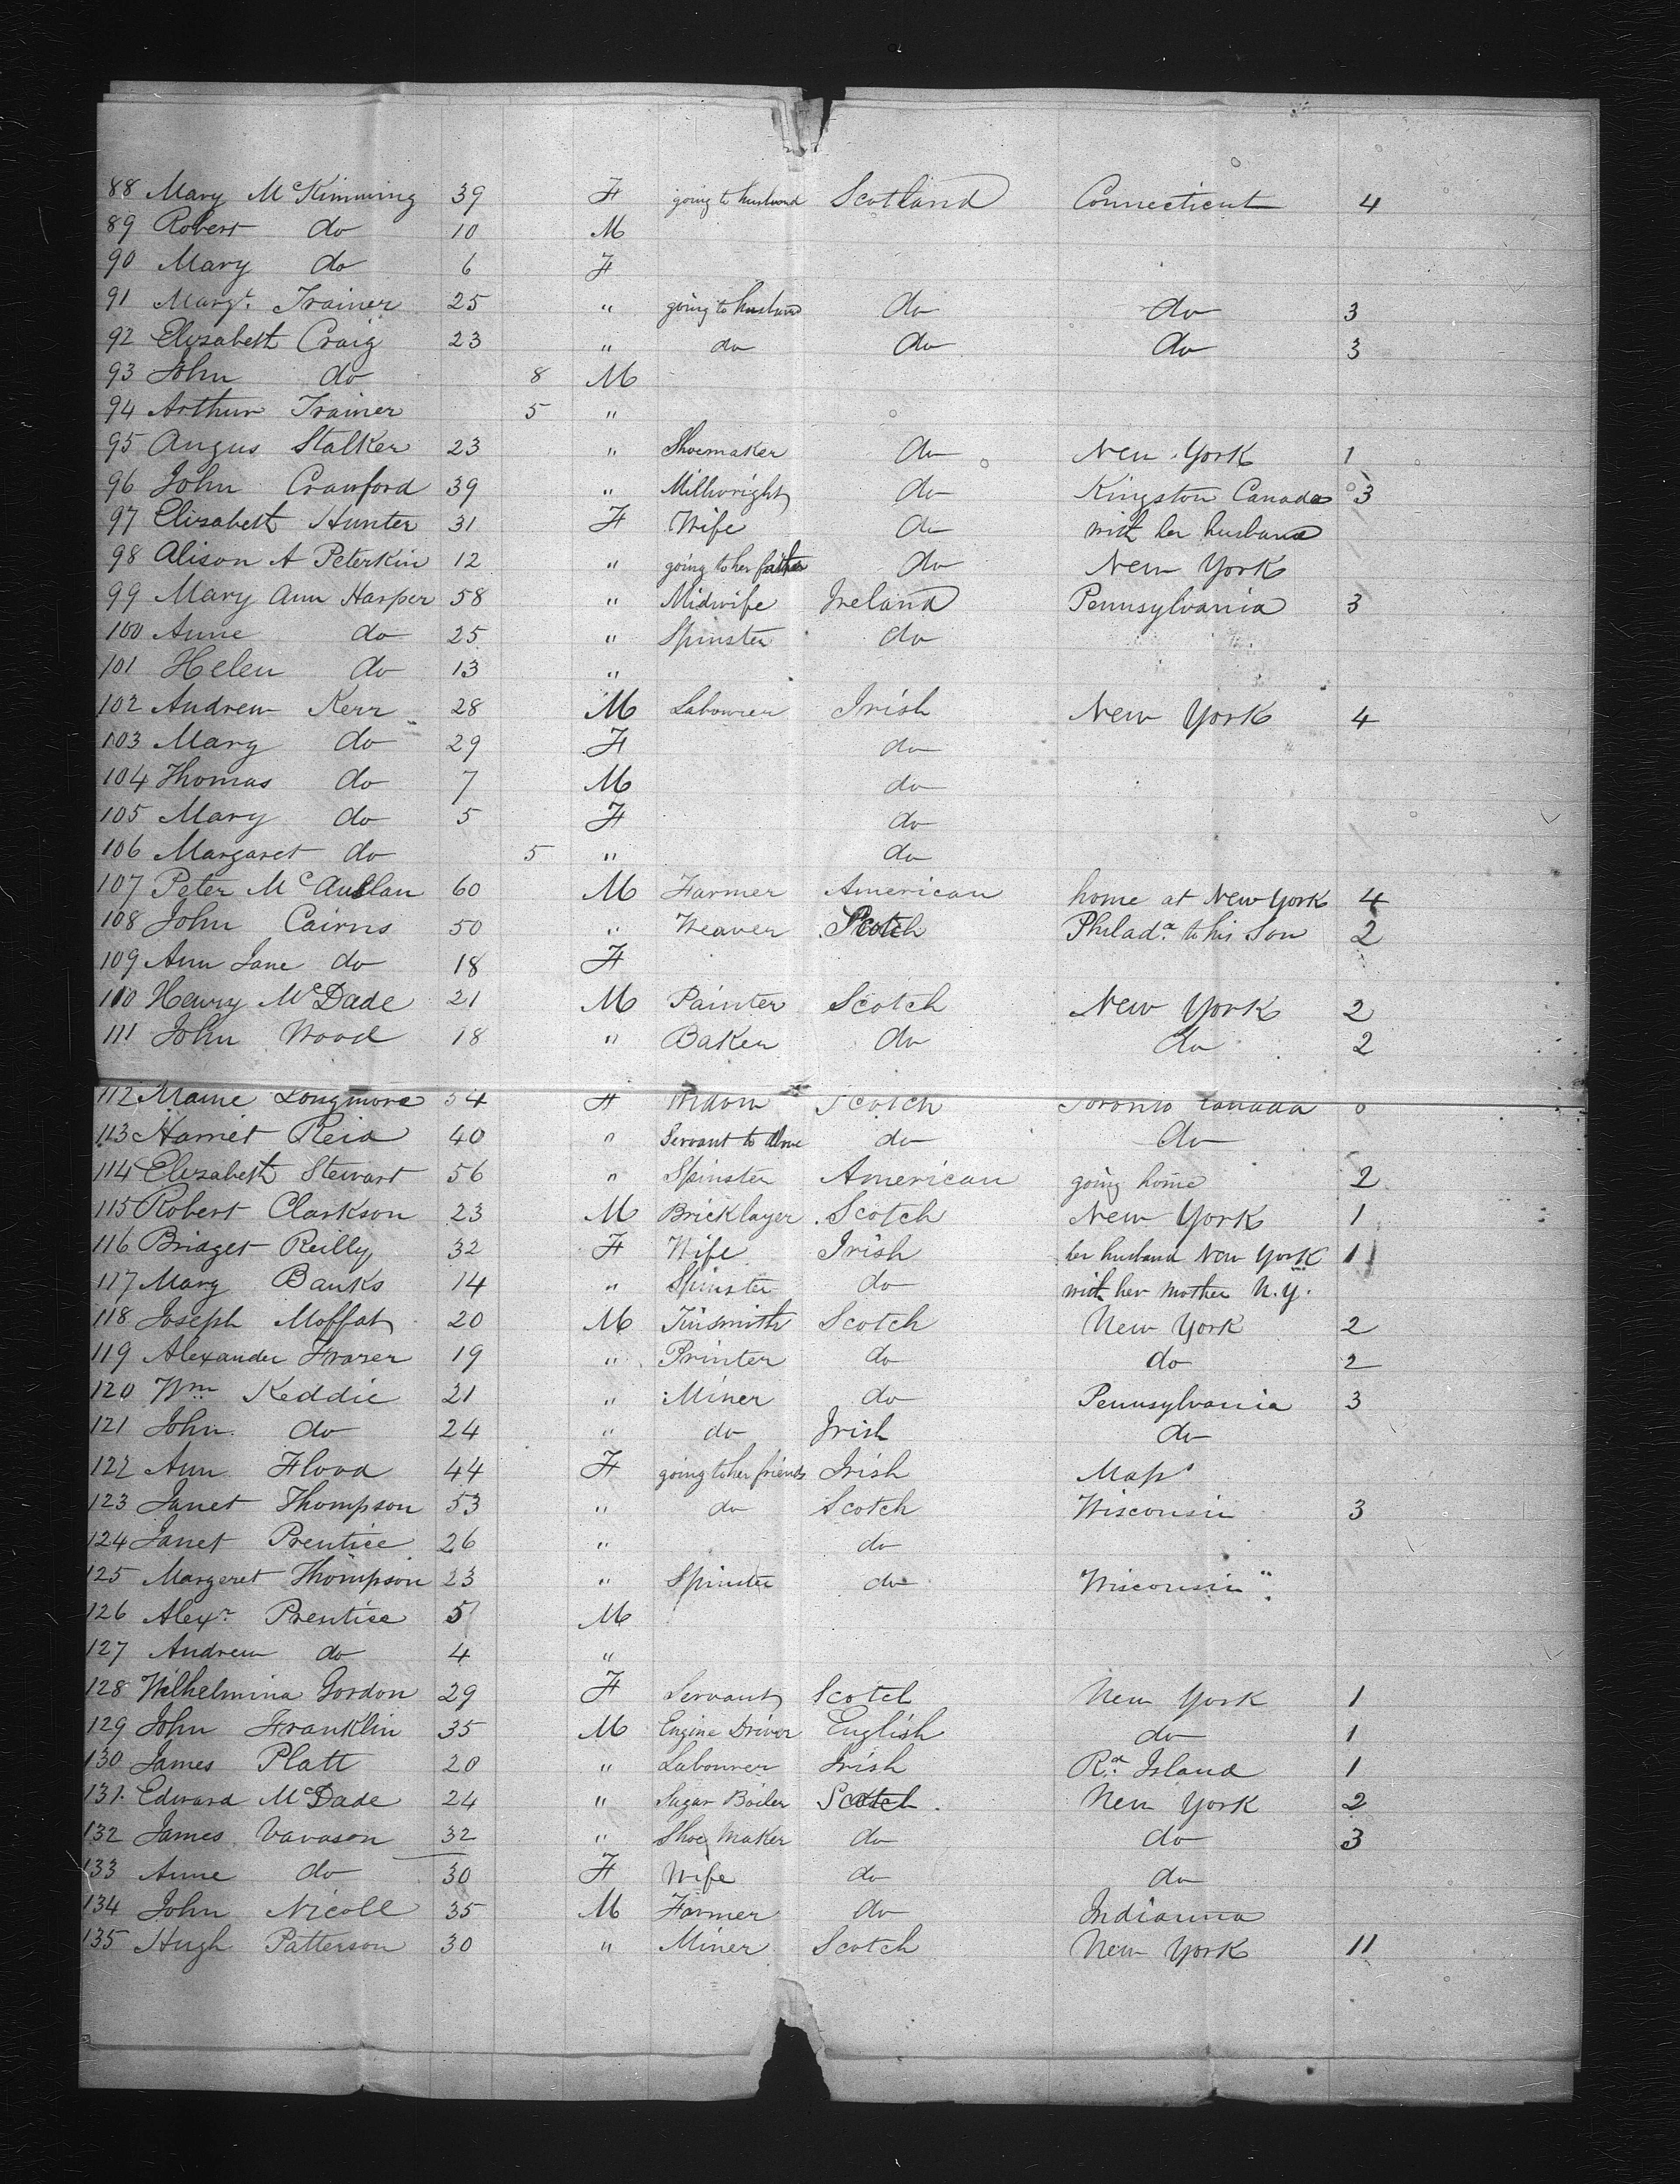 88 Mary McKimming 39 F going to husband Scotland Connecticut 4
89 Robert do 10 M
90 Mary do 6 F
91 Margt. Trainer 25 " going to husband do do 3
92 Elizabeth Craig 23 " do do do 3
93 John do 8 M
94 Arthur Trainer 5 "
95 Angus Stalker 23 " Shoemaker do New York 1
96 John Crawford 39 " Millwright do Kingston Canada 3
97 Elizabeth Hunter 31 F Wife do with her husband
98 Alison A Peterkin 12 " going to her father do New York
99 Mary Ann Harper 58 " Midwife Ireland Pennsylvania 3
100 Anne do 25 " Spinster do
101 Helen do 13 "
102 Andrew Kerr 28 M Labourer Irish New York 4
103 Mary do 29 F do
104 Thomas do 7 M do
105 Mary do 5 F do
106 Margaret do 5 " do
107 Peter McAuslan 60 M Farmer American home at New York 4
108 John Cairns 50 " Weaver Scotch Philada. to his Son 2
109 Ann Jane do 18 F
110 Henry McDade 21 M Painter Scotch New York 2
111 John Wood 18 " Baker do do 2
112 Longmore 54 F Widow Scotch Toronto Canada
113 Harriet Reid 40 " Servant to above do do
114 Elizabeth Stewart 56 " Spinster American going home 2
115 Robert Clarkson 23 M Bricklayer Scotch New York 1
116 Bridget Reilly 32 F Wife Irish her husband New York 1
117 Mary Banks 14 " Spinster do with her mother N.Y.
118 Joseph Moffat 20 M Tinsmith Scotch New York 2
119 Alexander Frazer 19 " Printer do do 2
120 Wm Keddie 21 " Miner do Pennsylvania 3
121 John do 24 " do Irish do
122 Ann Flood 44 F going to her friends Irish Mass
123 Janet Thompson 53 " do Scotch Wisconsin 3
124 Janet Prentice 26 " do
125 Margeret Thompson 23 " Spinster do Wisconsin
126 Alexr. Prentice 5 M
127 Andrew do 4 "
128 Wilhelmina Gordon 29 F Servant Scotch New York 1
129 John Franklin 35 M Engine Driver English do 1
130 James Platt 20 " Labourer Irish Rd. Island 1
131 Edward McDade 24 " Sugar Boiler Scotch New York 2
132 James Vavason 32 " Shoe Maker do do 3
133 Anne do 30 F Wife do do
134 John Nicoll 35 M Farmer do Indianna
135 Hugh Patterson 30 " Miner Scotch New York 11